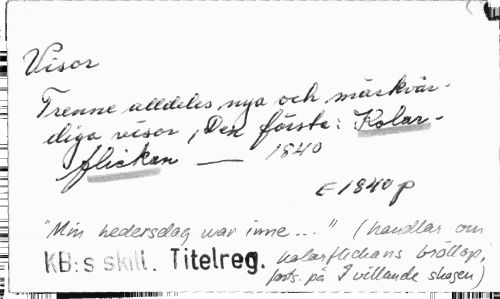 Visor
Trenne alldeles nya och märkvär-
diga visor, Den första: Kolar-
flickan — 1840
E 1840 p
"Min hedersdag var inne..." (handlar om
KB:s skill. Titelreg. kolarflickans bröllop,
forts. på I villande skogen)